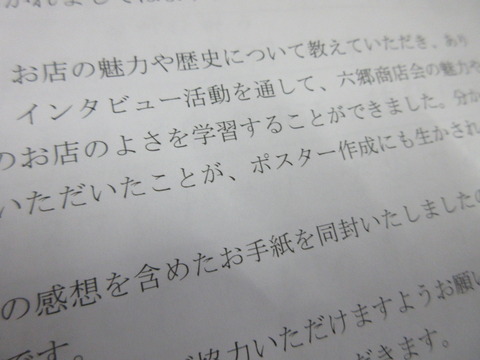 お店の魅力や歴史について教えていただき、あり
インタビュー活動を通して、六郷商店会の魅力や
のお店のよさを学習することができました。分か
いただいたことが、ポスター作成にも生かされ
の感想を含めたお手紙を同封いたしましたの
です。
協力いただけますようお願い
だきます。